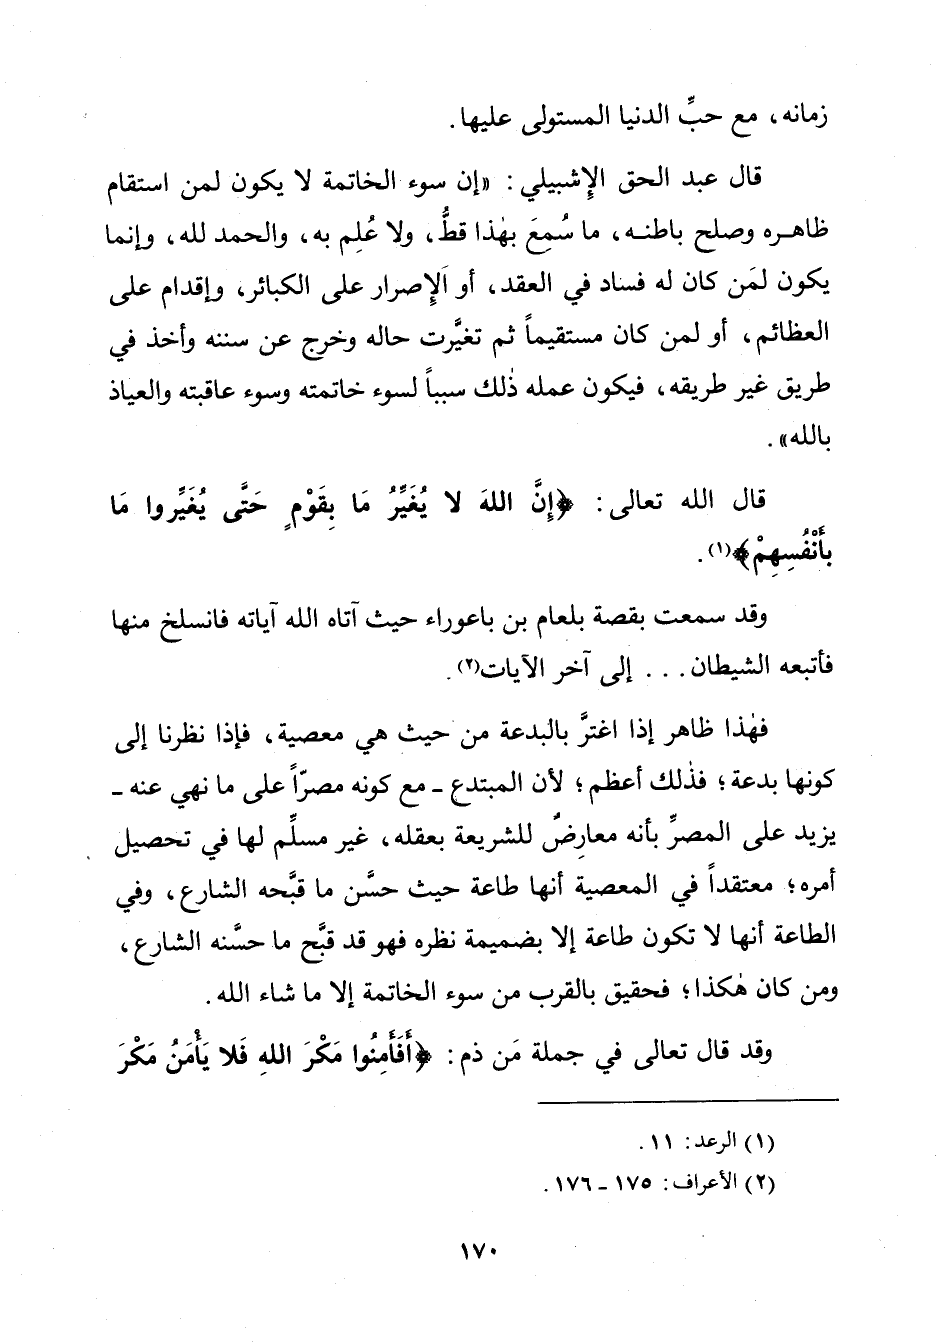 زمانه، مع حبِّ الدنيا المستولى عليها.
قال عبد الحق الإشبيلي: «إن سوء الخاتمة لا يكون لمن استقام
ظاهـره وصلح باطنـه، ما سُمِعَ بهٰذا قطُّ، ولا عُلِم به، والحمد لله، وإنما
يكون لمَن كان له فساد في العقد، أو الإصرار على الكبائر، وإقدام على
العظائم، أو لمن كان مستقيماً ثم تغيَّرت حاله وخرج عن سننه وأخذ في
طريق غير طريقه، فيكون عمله ذٰلك سبباً لسوء خاتمته وسوء عاقبته والعياذ
بالله».
قال الله تعالى: ﴿إِنَّ اللهَ لا يُغَيِّرُ مَا بِقَوْمٍ حَتَّى يُغَيِّروا مَا
بأَنْفُسِهِمْ﴾(١).
وقد سمعت بقصة بلعام بن باعوراء حيث آتاه الله آياته فانسلخ منها
فأتبعه الشيطان... إلى آخر الآيات(٢).
فهٰذا ظاهر إذا اغترَّ بالبدعة من حيث هي معصية، فإذا نظرنا إلى
كونها بدعة؛ فذٰلك أعظم؛ لأن المبتدع ـ مع كونه مصرّاً على ما نهي عنه ـ
يزيد على المصرِّ بأنه معارضٌ للشريعة بعقله، غير مسلِّم لها في تحصيل
أمره؛ معتقداً في المعصية أنها طاعة حيث حسَّن ما قبَّحه الشارع، وفي
الطاعة أنها لا تكون طاعة إلا بضميمة نظره فهو قد قبَّح ما حسَّنه الشارع،
ومن كان هٰكذا؛ فحقيق بالقرب من سوء الخاتمة إلا ما شاء الله.
وقد قال تعالى في جملة مَن ذم: ﴿أَفَأَمِنُوا مَكْرَ اللهِ فَلا يَأْمَنُ مَكْرَ
(١) الرعد: ١١.
(٢) الأعراف: ١٧٥ ـ ١٧٦.
١٧٠